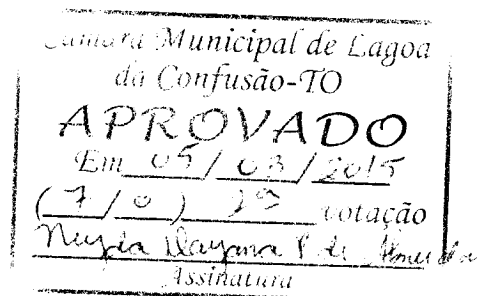 Câmara Municipal de Lagoa
da Confusão-TO
APROVADO
Em 05/03/2015
(7/0) votação
Neyda Dayana P de Almeida
Assinatura